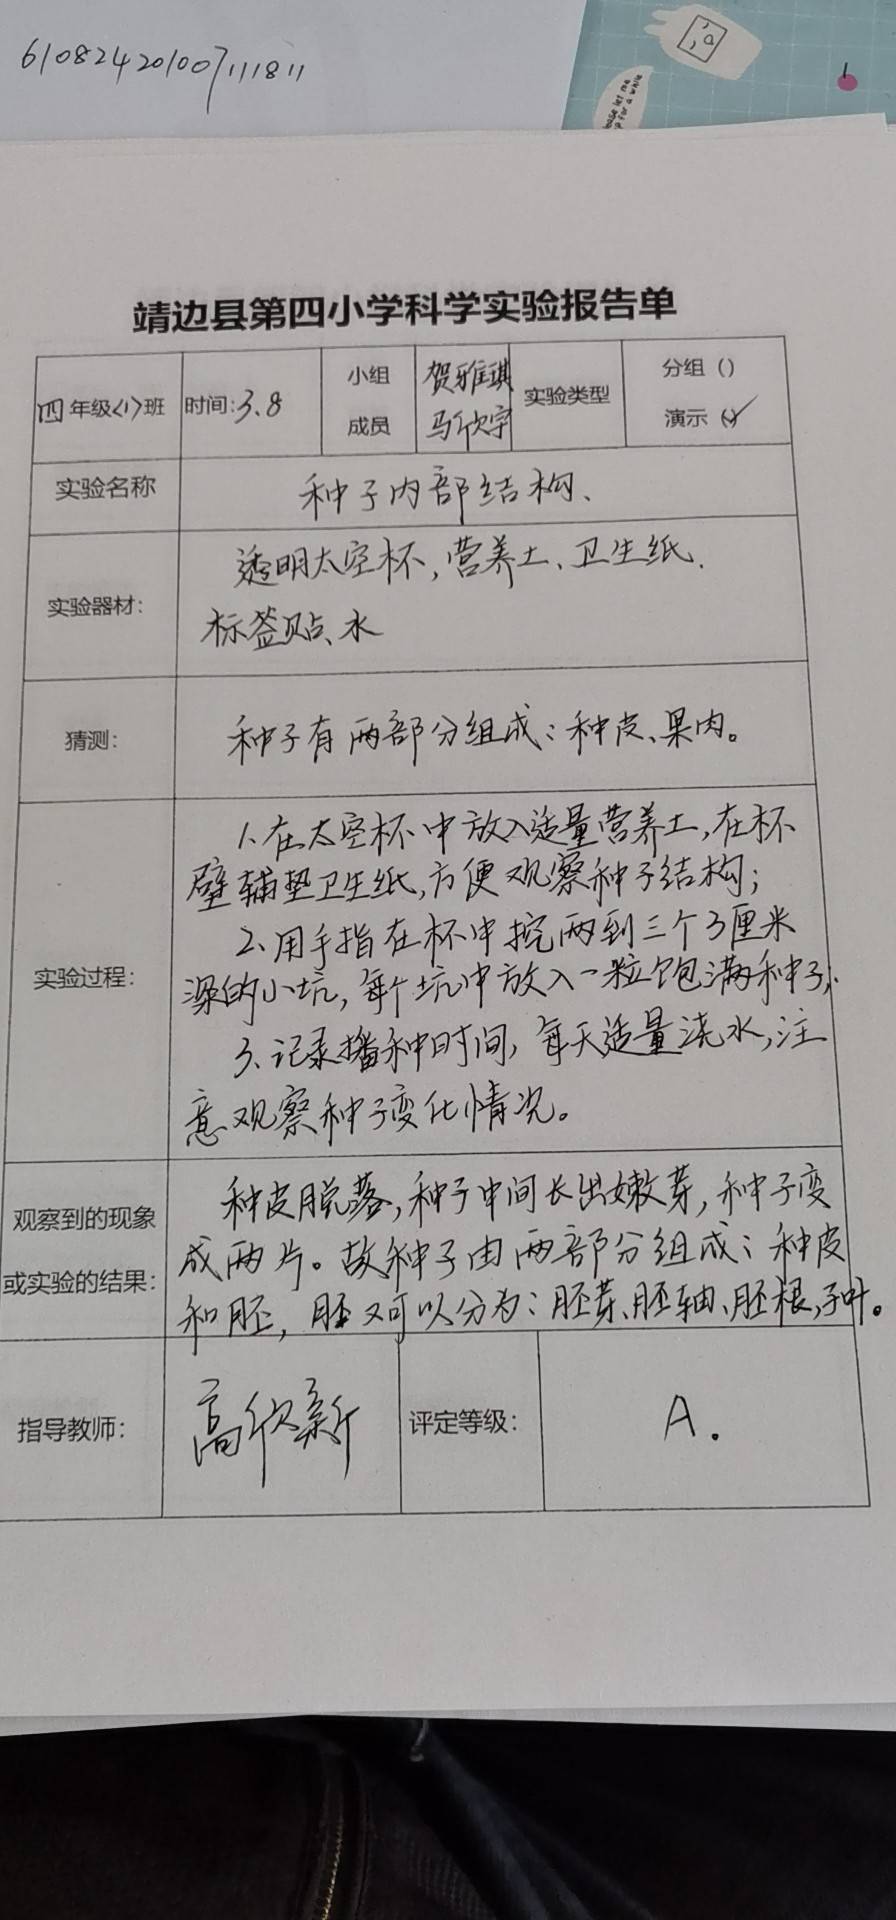 610824201007111811
please let me
up for a while
靖边县第四小学科学实验报告单
四年级(1)班
时间:3.8
小组
成员
贺雅琪
马欣宇
实验类型
分组()
演示(✓)
实验名称
种子内部结构、
实验器材:
透明太空杯,营养土、卫生纸、
标签贴、水
猜测:
种子有两部分组成:种皮、果肉。
实验过程:
1、在太空杯中放入适量营养土,在杯
壁铺垫卫生纸,方便观察种子结构;
2、用手指在杯中挖两到三个3厘米
深的小坑,每个坑中放入一粒饱满种子;
3、记录播种时间,每天适量浇水,注
意观察种子变化情况。
观察到的现象
或实验的结果:
种皮脱落,种子中间长出嫩芽,种子变
成两片。故种子由两部分组成:种皮
和胚,胚又可以分为:胚芽、胚轴、胚根,子叶。
指导教师:
高欣新
评定等级:
A.